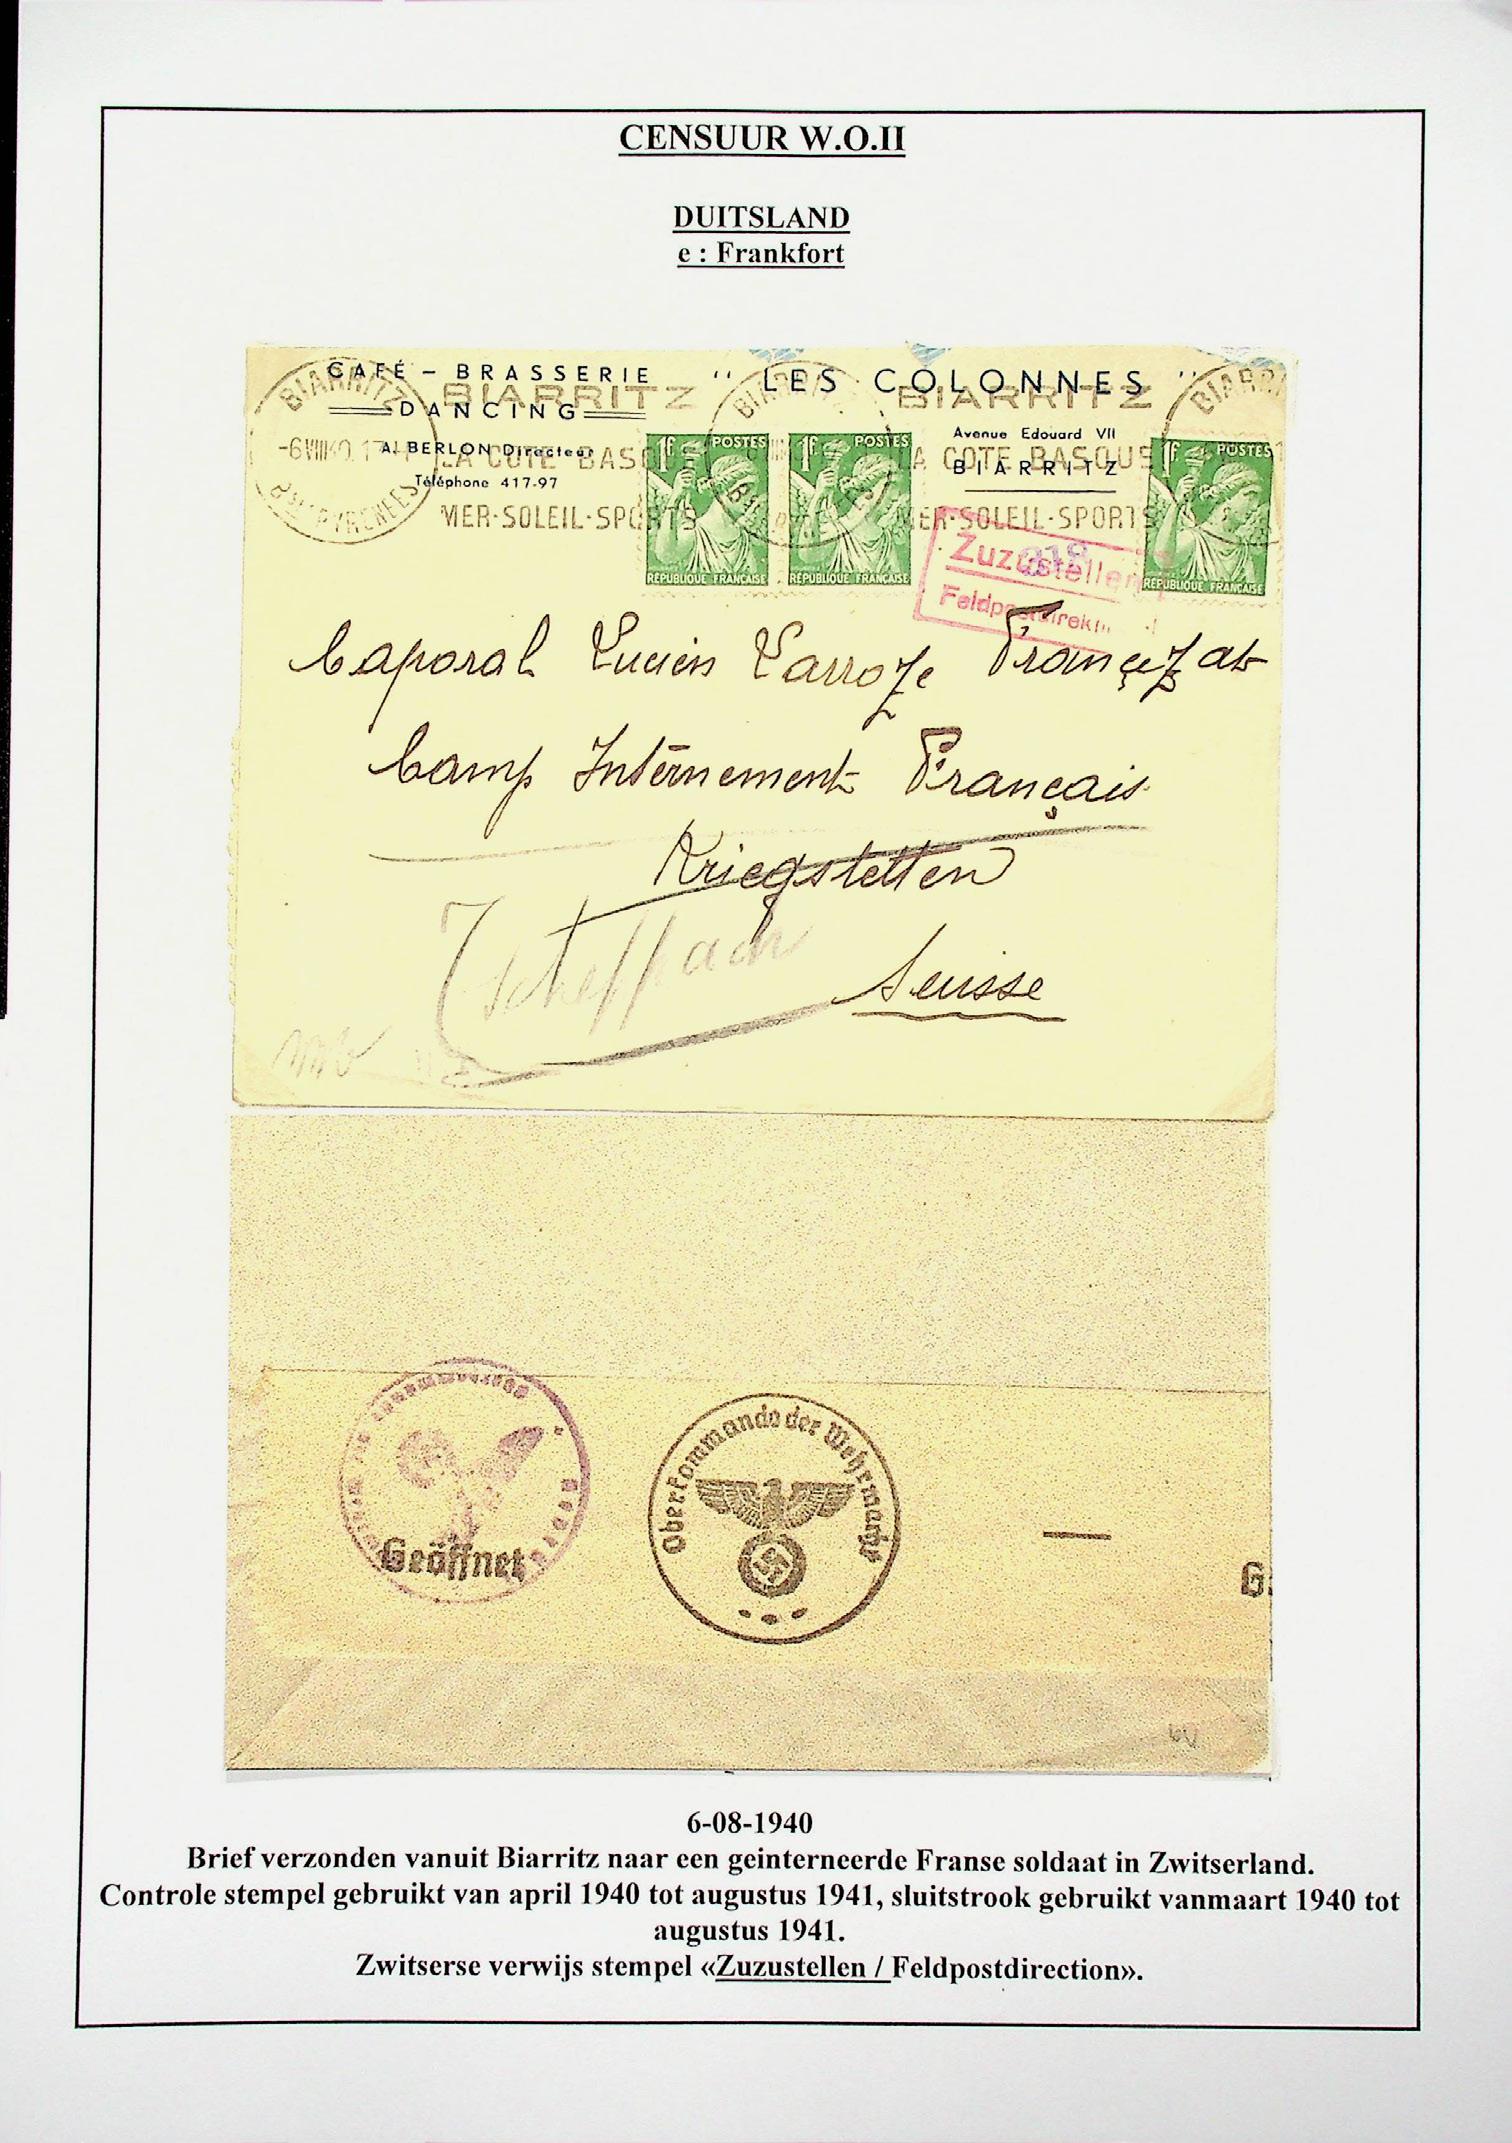 CENSUUR W.O.II
DUITSLAND
e : Frankfort
CAFÉ - BRASSERIE " LES COLONNES "
DANCING
A. BERLON Directeur
Téléphone 417-97
Avenue Edouard VII
BIARRITZ
BIARRITZ
-6 VIII 40
Bses PYRENEES
BIARRITZ
LA COTE BASQUE
MER·SOLEIL·SPORTS
BIARRITZ
BIARRITZ
LA COTE BASQUE
MER·SOLEIL·SPORTS
BIARRITZ
1F POSTES
RÉPUBLIQUE FRANÇAISE
1F POSTES
RÉPUBLIQUE FRANÇAISE
1F POSTES
RÉPUBLIQUE FRANÇAISE
218
Zuzustellen
Feldpostdirekti
Caporal Lucien Larroze
Camp Internement Français
Kriegstetten
Suisse
Geöffnet
Oberkommando der Wehrmacht
G
6-08-1940
Brief verzonden vanuit Biarritz naar een geinterneerde Franse soldaat in Zwitserland.
Controle stempel gebruikt van april 1940 tot augustus 1941, sluitstrook gebruikt vanmaart 1940 tot
augustus 1941.
Zwitserse verwijs stempel «Zuzustellen / Feldpostdirection».